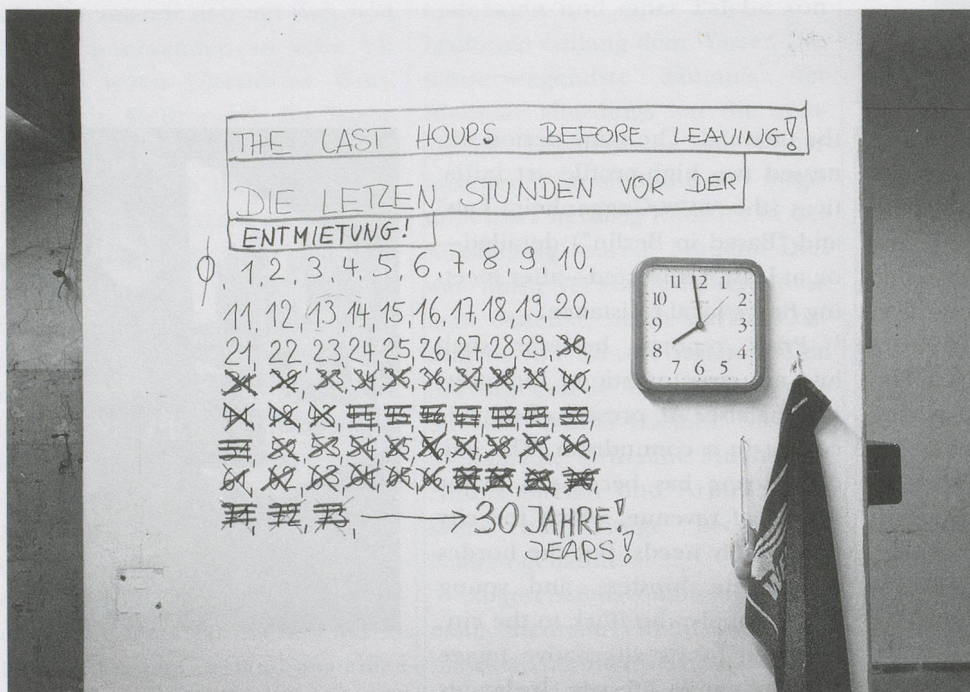 THE LAST HOURS BEFORE LEAVING!
DIE LETZEN STUNDEN VOR DER
ENTMIETUNG!
0, 1, 2, 3, 4, 5, 6, 7, 8, 9, 10
11, 12, 13, 14, 15, 16, 17, 18, 19, 20
21, 22, 23, 24, 25, 26, 27, 28, 29, 30
31, 32, 33, 34, 35, 36, 37, 38, 39, 40
41, 42, 43, 44, 45, 46, 47, 48, 49, 50
51, 52, 53, 54, 55, 56, 57, 58, 59, 60
61, 62, 63, 64, 65, 66, 67, 68, 69, 70
71, 72, 73, → 30 JAHRE!
JEARS!
11 12
10 2
9 3
8 4
7 6 5